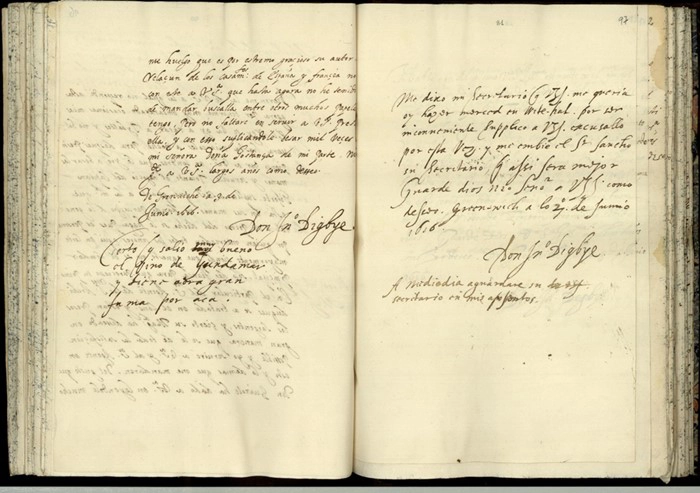 me huelgo que es por estremo precioso su autor
Relaçion de los casamᵗᵒˢ de España y françia no
con esto a V.S. que hasta agora no he
de mandar entre otros muchos papeles
tengo. Pero no faltare en servir a V.S.
ella, y con esto suplicandole besar mil vezes
mi señora doña Costança de mi parte.
a V.S. largos años como deseo.
De Grenuiche la 9. de
Junio 1616.
Don Jnº Digbye.
Cierto q salio muy bueno
el vino de Gondamar
y tiene otra gran
fama por aca.
97 2
Me dixo mi Secretario q V.S. me queria
oy hazer merced en Wite-hal. por ser
inconueniente supplico a V.S. escusallo
por esta vez. y me embie el Sr Sancho
su Secretario, q assi sera mejor
Guarde dios Nro Señor a V.S. como
desseo. Greenewich a lo 29. de Junio
1616
Don Jnº Digbye
A mediodia aguardare su
secretario en mis aposentos.